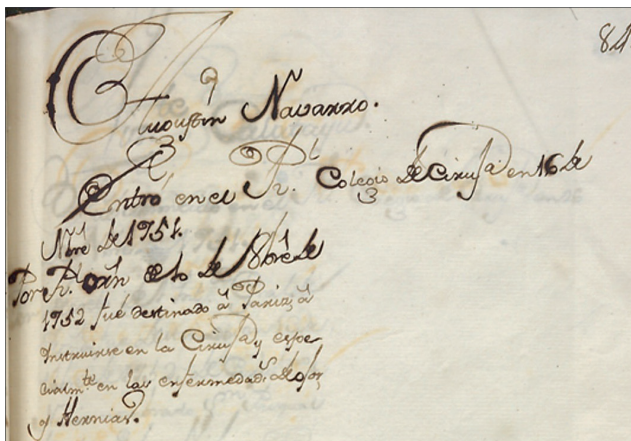 84
Augustin Navarro.
Entró en el Rl. Colegio de Cirugía en 16 de
Nbre de 1751.
Por Rl. orn de 10 de Nbre de
1752 fué destinado á Pariz, á
Instruirse en la Cirugía y espe
cialmte. en las enfermedads. de los
y Hernias.